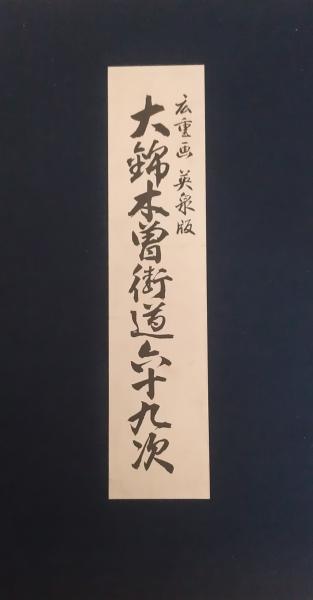 広重画 英泉版
大錦木曽街道六十九次